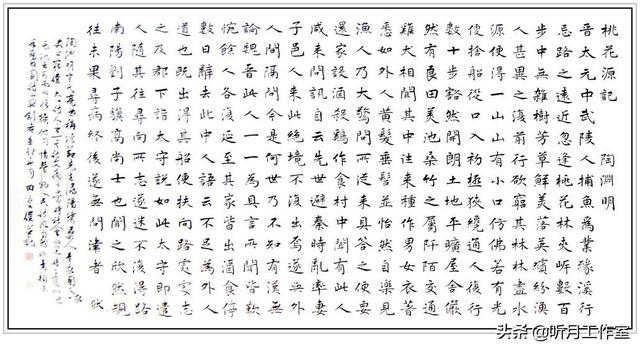 桃花源記 陶淵明
晉太元中武陵人捕魚為業緣溪行
忘路之遠近忽逢桃花林夾岍數百
步中無雜樹芳草鮮美落英繽紛漁
人甚異之復前行欲窮其林林盡水
源便得一山山有小口仿佛若有光
便捨船從口入初極狹纔通人復行
數十步豁然開朗土地平曠屋舍儼
然有良田美池桑竹之屬阡陌交通
雞犬相聞其中往來種作男女衣著
悉如外人黃髮垂髫並怡然自樂見
漁人乃大驚問所從來具答之便要
還家設酒殺雞作食村中聞有此人
咸來問訊自云先世避秦時亂率妻
子邑人來此絕境不復出焉遂與外
人間隔問今是何世乃不知有漢無
論魏晉此人一一為具言所聞皆歎
惋餘人各復延至其家皆出酒食停
數日辭去此中人語云不足為外人
道也既出得其船便扶向路處處志
之及郡下詣太守說如此太守即遣
人隨其往尋向所志遂迷不復得路
南陽劉子驥高尚士也聞之欣然規
往未果尋病終後遂無問津者
头条@听月工作室